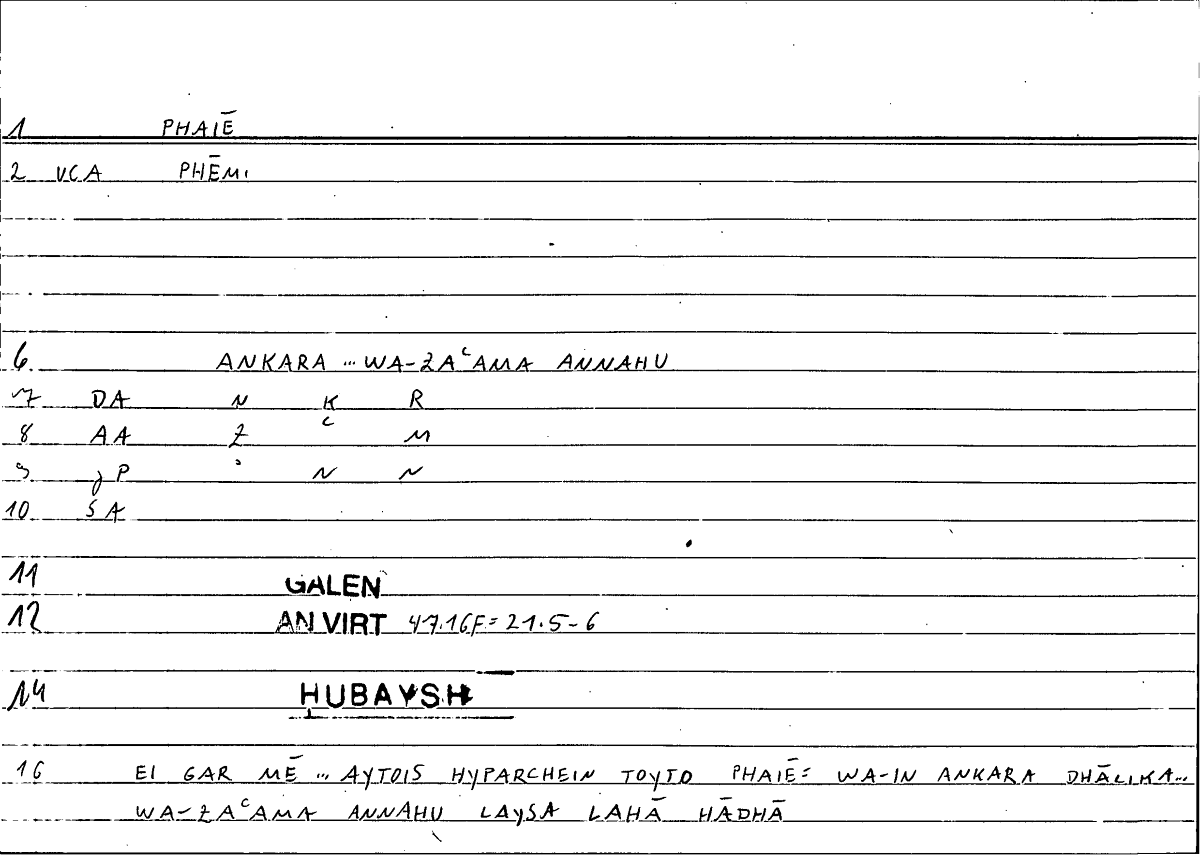 1 PHAIĒ
2 VCA PHĒMI
6 ANKARA ... WA-ZAʿAMA ANNAHU
7 DA N K R
8 AA Z ʿ M
9 jP ʾ N N
10 SA
11 GALEN
12 AN VIRT 47.16F = 21.5-6
14 HUBAYSH
16 EI GAR MĒ ... AYTOIS HYPARCHEIN TOYTO PHAIĒ = WA-IN ANKARA DHĀLIKA...
WA-ZAʿAMA ANNAHU LAYSA LAHĀ HĀDHĀ